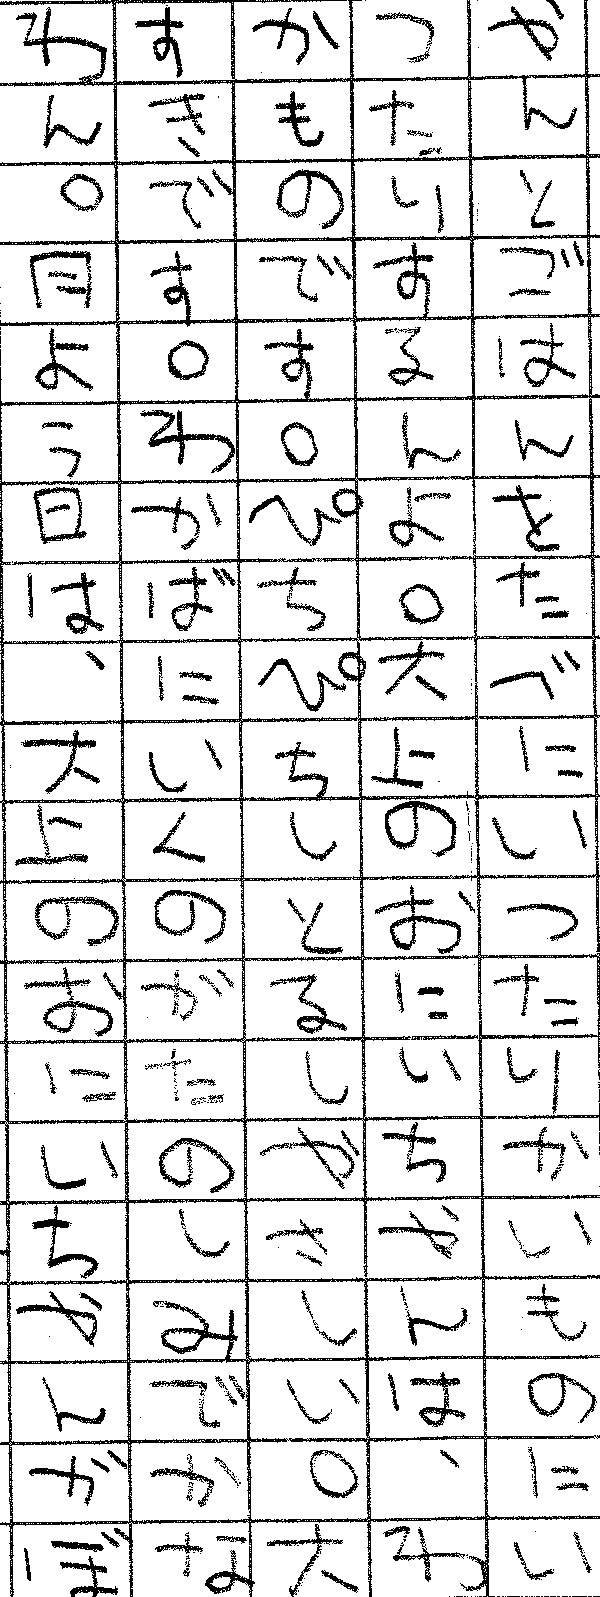 ゃんとごはんをたべにいったりかいものにい
ったりするんよ。大上のおにいちゃんは、わ
かものです。ぴちぴちしとるしやさしい。大
すきです。わかばにいくのがたのしみでかな
わん。月よう日は、大上のおにいちゃんがぼ